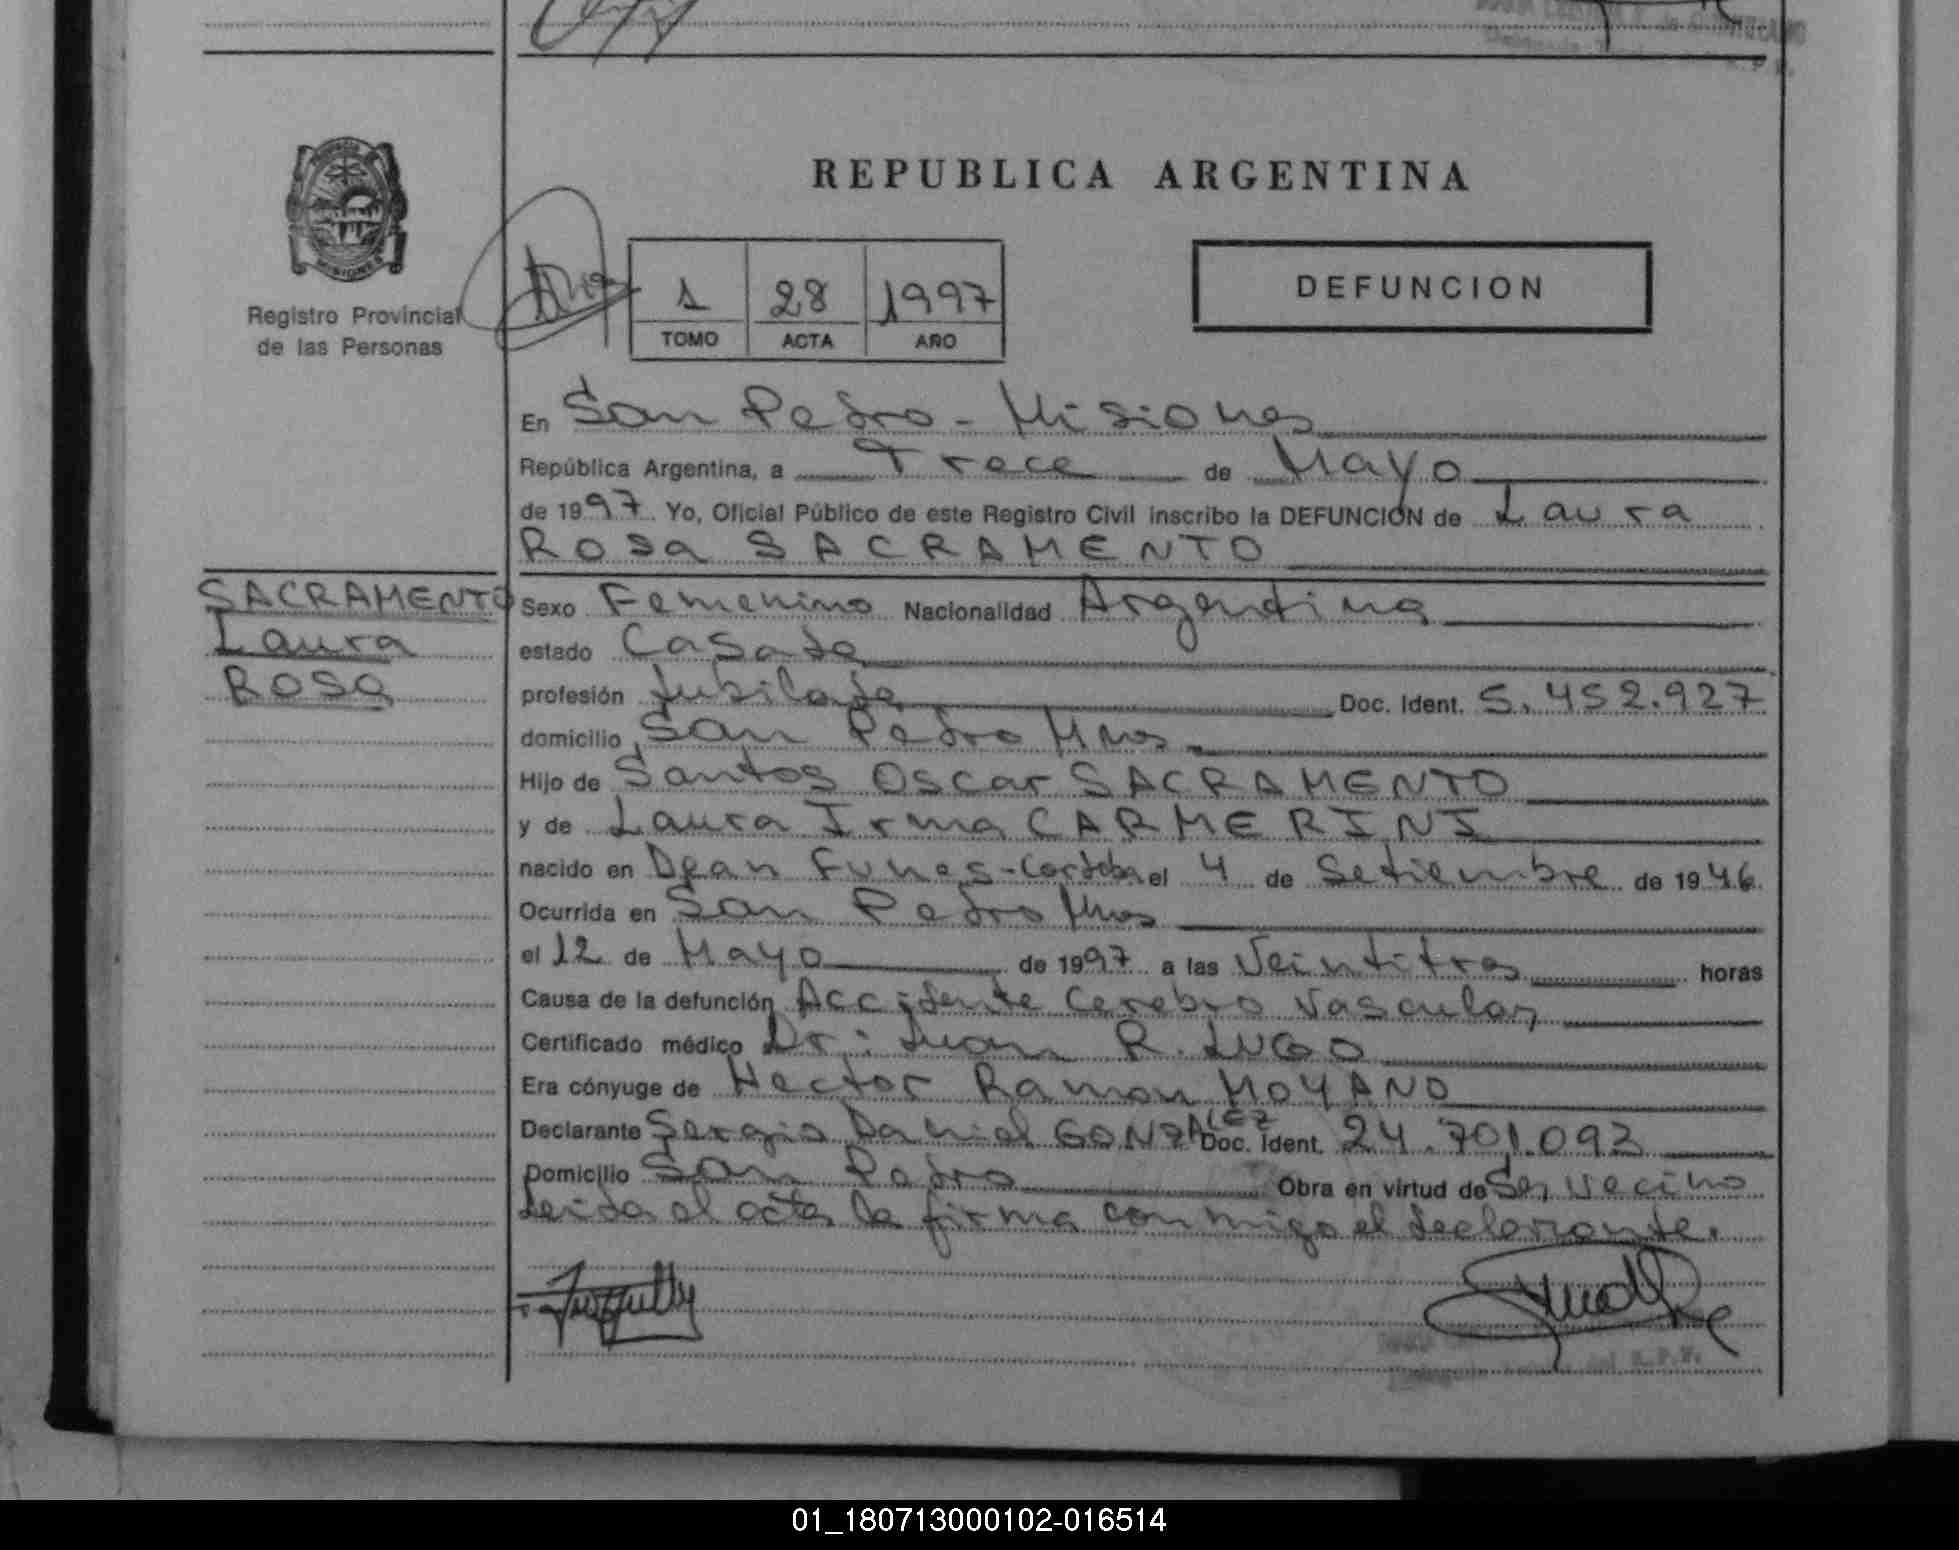 REPUBLICA ARGENTINA
PROVINCIA DE
MISIONES
Registro Provincial
de las Personas
1 28 1997
TOMO ACTA AÑO
DEFUNCION
En San Pedro - Misiones
República Argentina, a Trece de Mayo
de 1997. Yo, Oficial Público de este Registro Civil inscribo la DEFUNCIÓN de Laura
Rosa SACRAMENTO
SACRAMENTO
Laura
Rosa
Sexo Femenino Nacionalidad Argentina
estado Casada
profesión Jubilada Doc. Ident. 5.452.927
domicilio San Pedro Mnes.
Hijo de Santos Oscar SACRAMENTO
y de Laura Irma CARMERINI
nacido en Dean Funes-Cordoba el 4 de Setiembre de 1946.
Ocurrida en San Pedro Mnes
el 12 de Mayo de 1997 a las Veintitres horas
Causa de la defunción Accidente Cerebro Vascular
Certificado médico Dr: Juan R. LUGO
Era cónyuge de Hector Ramon MOYANO
Declarante Sergio Daniel GONZALEZ Doc. Ident. 24.701.093
Domicilio San Pedro Obra en virtud de Ser vecino
Leida el acta la firma conmigo el declarante.
01_180713000102-016514